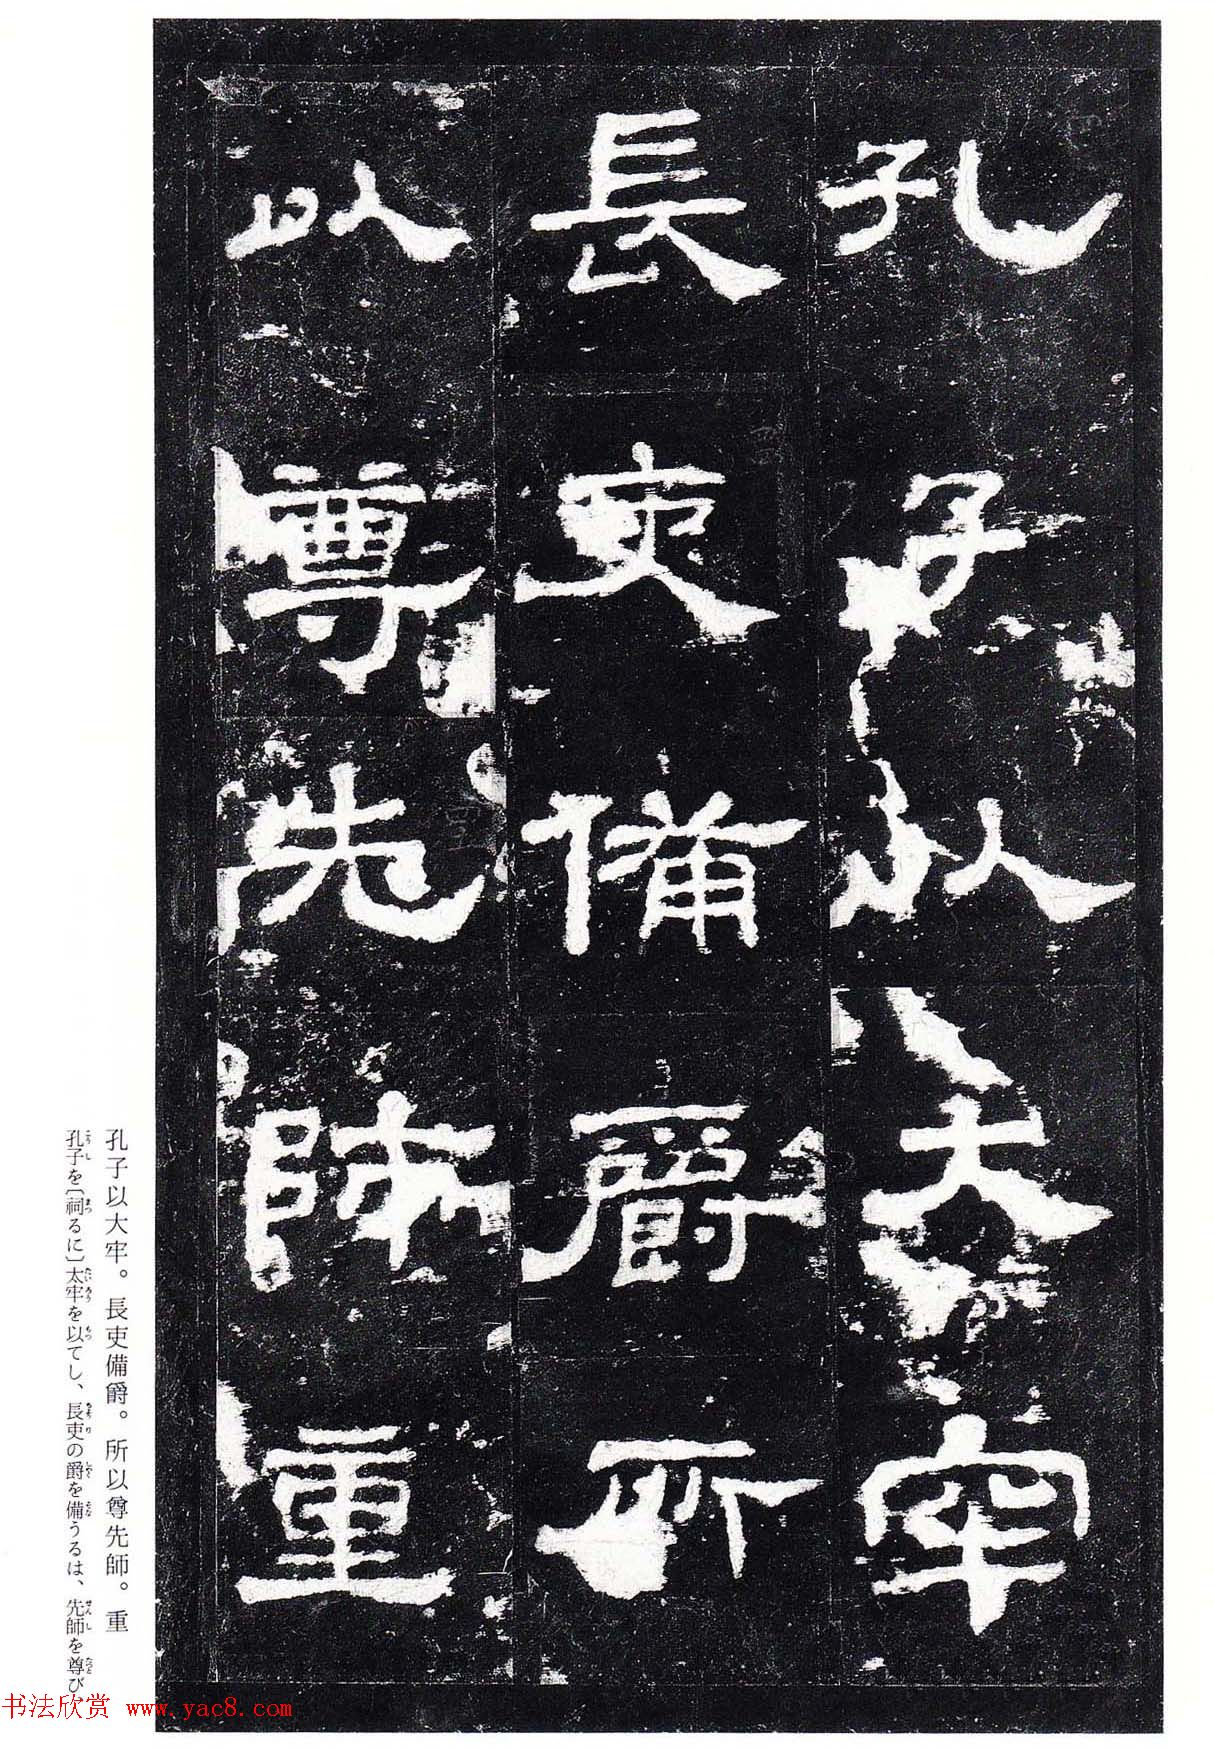 孔子以大牢
長吏備爵所
以尊先師重
孔子以大牢。長吏備爵。所以尊先師。重
孔子を〔祠るに〕太牢を以てし、長吏の爵を備うるは、先師を尊び、
书法欣赏 www.yac8.com